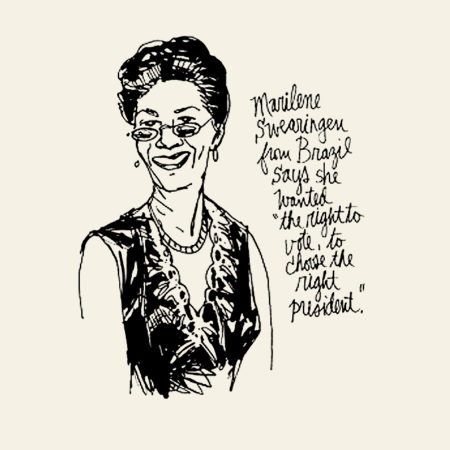 Marilene
Swearingen
from Brazil
says she
wanted
"the right to
vote, to
choose the
right
president."